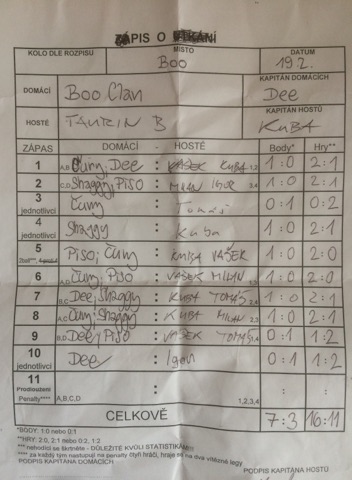 ZÁPIS O UTKÁNÍ
KOLO DLE ROZPISU MÍSTO DATUM
Boo 19.2.
DOMÁCÍ Boo Clan KAPITÁN DOMÁCÍCH Dee
HOSTÉ TAURIN B KAPITÁN HOSTŮ KUBA
ZÁPAS DOMÁCÍ - HOSTÉ Body* Hry**
1 A,B Čury, Dee : VAŠEK KUBA 1,2 1:0 2:1
2 C,D Shaggy, Piso : MILAN IGOR 3,4 1:0 2:1
3 jednotlivci Čury : Tomáš 0:1 0:2
4 jednotlivci Shaggy : Kuba 1:0 2:1
5 Piso, Čury : VAŠEK 1:0 2:0
6 A,D Čury, Piso : VAŠEK MILAN 1:0 2:0
7 B,C Dee, Shaggy : KUBA TOMÁŠ 2,4 1:0 2:1
8 A,C Čury, Shaggy : KUBA MILAN 2,3 1:0 2:1
9 B,D Dee, Piso : VAŠEK TOMÁŠ 1,4 0:1 1:2
10 jednotlivci Dee : Igor 0:1 1:2
11 Prodloužení : : :
Penalty**** A,B,C,D 1,2,3,4
CELKOVĚ 7:3 16:11
*BODY: 1:0 nebo 0:1
**HRY: 2:0, 2:1 nebo 0:2, 1:2
*** nehodící se škrtněte - DŮLEŽITÉ KVŮLI STATISTIKÁM!!!
**** za každý tým nastupují na penalty čtyři hráči, hraje se na dva vítězné legy
PODPIS KAPITÁNA DOMÁCÍCH PODPIS KAPITÁNA HOSTŮ